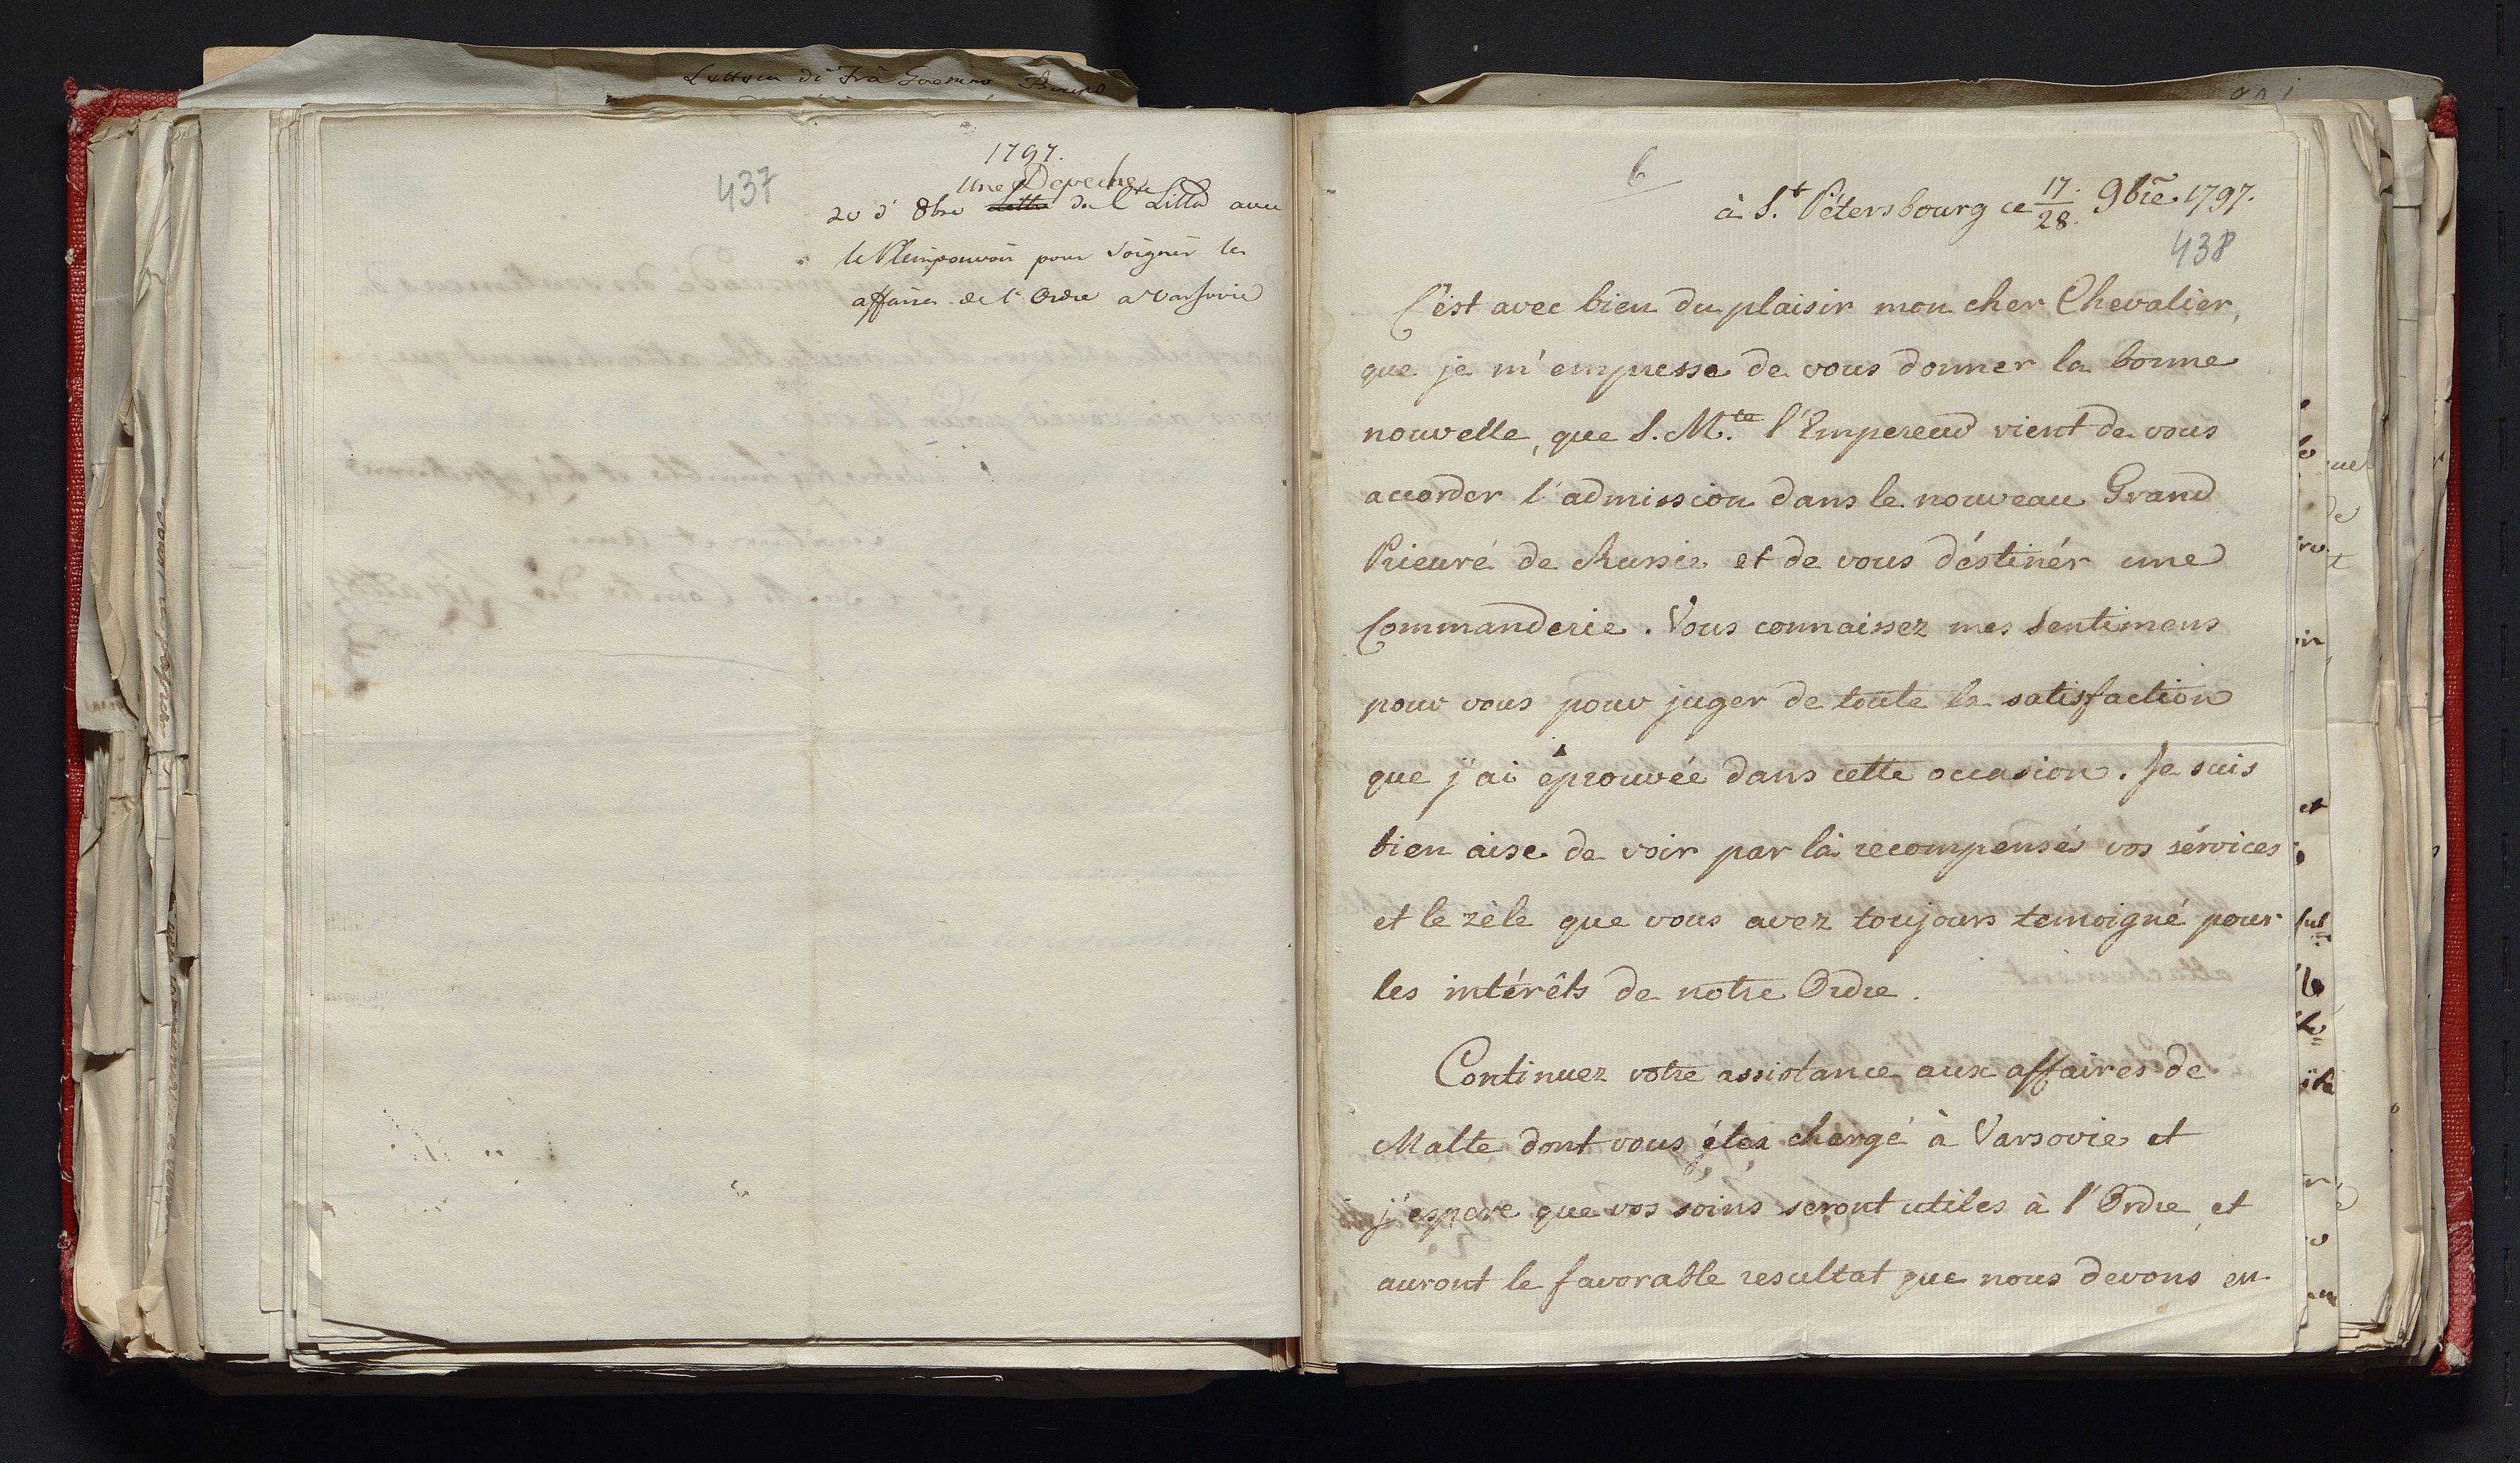 437
1797.
Une Depeche
20 d' 8bre du Cte Litta avec
le Pleinpouvoir pour soigner les
affaires de l'Ordre a Varsovie
6
à S.t Pétersbourg ce 17/28. 9bre. 1797.
438
C'est avec bien du plaisir mon cher Chevalier,
que je m'empresse de vous donner la bonne
nouvelle, que S. M.te l'Empereur vient de vous
accorder l'admission dans le nouveau Grand
Prieuré de Russie et de vous déstinér une
Commanderie. Vous connaissez mes sentimens
pour vous pour juger de toute la satisfaction
que j'ai éprouvée dans cette occasion. Je suis
bien aise de voir par là recompensé vos sérvices
et le zèle que vous avez toujours temoigné pour
les intérêts de notre Ordre.
Continuez votre assistance aux affaires de
Malte dont vous étes chargé à Varsovie et
j'espere que vos soins seront utiles à l'Ordre, et
auront le favorable resultat que nous devons en